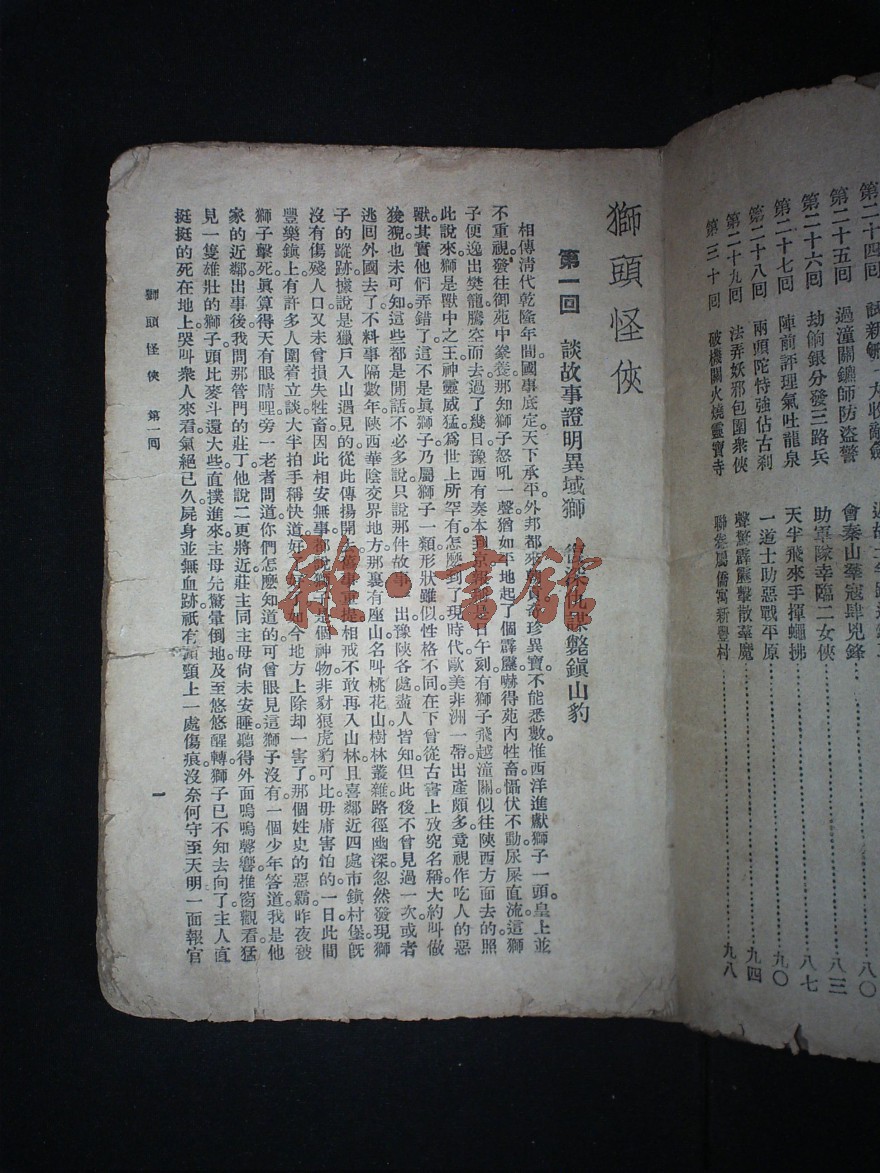 第二十四回
第二十五回　過潼關鑣師防盜警
第二十六回　劫餉銀分發三路兵
第二十七回　陣前評理氣吐龍泉
第二十八回　兩頭陀恃強佔古刹
第二十九回　法弄妖邪包圍衆俠
第三十回　破機關火燒靈寶寺
八〇
會秦山羣寇肆兇鋒……八三
助軍隊幸臨二女俠……八七
天半飛來手揮蠅拂……九〇
一道士助惡戰平原……九四
聲驚霹靂擊散羣魔……九八
聯眷屬僑寓新豐村
獅頭怪俠
第一回　談故事證明異域獅　謀斃鎭山豹
相傳淸代乾隆年間。國事底定。天下承平。外邦都來珍異寶。不能悉數。惟西洋進獻獅子一頭。皇上並
不重視。發往御苑中豢養。那知獅子怒吼一聲。猶如平地起了個霹靂。嚇得苑內牲畜懾伏不動。尿屎直流。這獅
子便逸出樊籠。騰空而去。過了幾日。豫西有奏本到京。是日午刻。有獅子飛越潼關。似往陝西方面去的。照
此說來。獅是獸中之王。神靈威猛。爲世上所罕有。怎麽到了現時代。歐美非洲一帶出產頗多。竟視作吃人的惡
獸。其實他們弄錯了。這不是眞獅子。乃屬獅子一類。形狀雖似。性格不同。在下曾從古書上攷究名稱。大約叫做
狻猊。也未可知。這些都是閒話。不必多說。只說那件故事。出豫陝各處。盡人皆知。但此後不曾見過一次。或者
逃回外國去了。不料事隔數年。陝西華陰交界地方。那裏有座山。名叫桃花山。樹林叢雜。路徑幽深。忽然發現獅
子的蹤跡。據說是獵戶入山遇見的。從此傳揚開去。相戒不敢再入山林。且喜鄰近四處市鎭村堡。旣
沒有傷殘人口。又未曾損失牲畜。因此相安無事。都說獅子是個神物。非豺狼虎豹可比。毋庸害怕的。一日。此間
豐樂鎭上。有許多人圍着立談。大半拍手稱快道。好如今地方上除却一害了。那個姓史的惡霸。昨夜被
獅子擊死。眞算得天有眼睛哩。旁一老者問道。你們怎麽知道的。可曾眼見這獅子沒有。一個少年答道。我是他
家的近鄰。出事後。我問那管門的莊丁。他說二更將近。莊主同主母尙未安睡。聽得外面嗚嗚聲響。推窗觀看。猛
見一隻雄壯的獅子頭。比麥斗還大些。直撲進來。主母先驚暈倒地。及至悠悠醒轉。獅子已不知去向了。主人直
挺挺的死在地上。哭叫衆人來看。氣絕已久。屍身並無血跡。祇有頭顱上一處傷痕。沒奈何守至天明。一面報官
獅頭怪俠　第一回
一
雜·書館